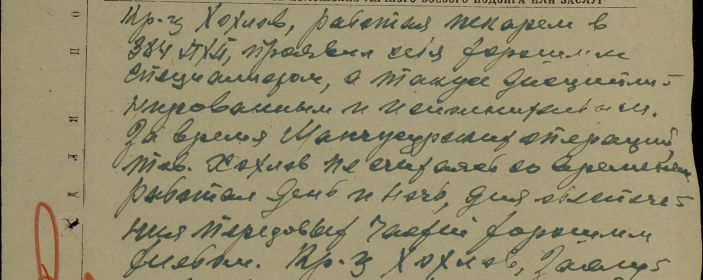 ЛИЧНОГО БОЕВОГО ПОДВИГА ИЛИ ЗАСЛУГ
Кр-ц Хохлов, работая пекарем в
384 ПХП, проявил себя хорошим
специалистом, а также дисципли-
нированным и исполнительным.
За время Манчжурских операций
тов. Хохлов не считаясь со временем
работал день и ночь, для обеспече-
ния передовых частей хорошим
хлебом. Кр-ц Хохлов,